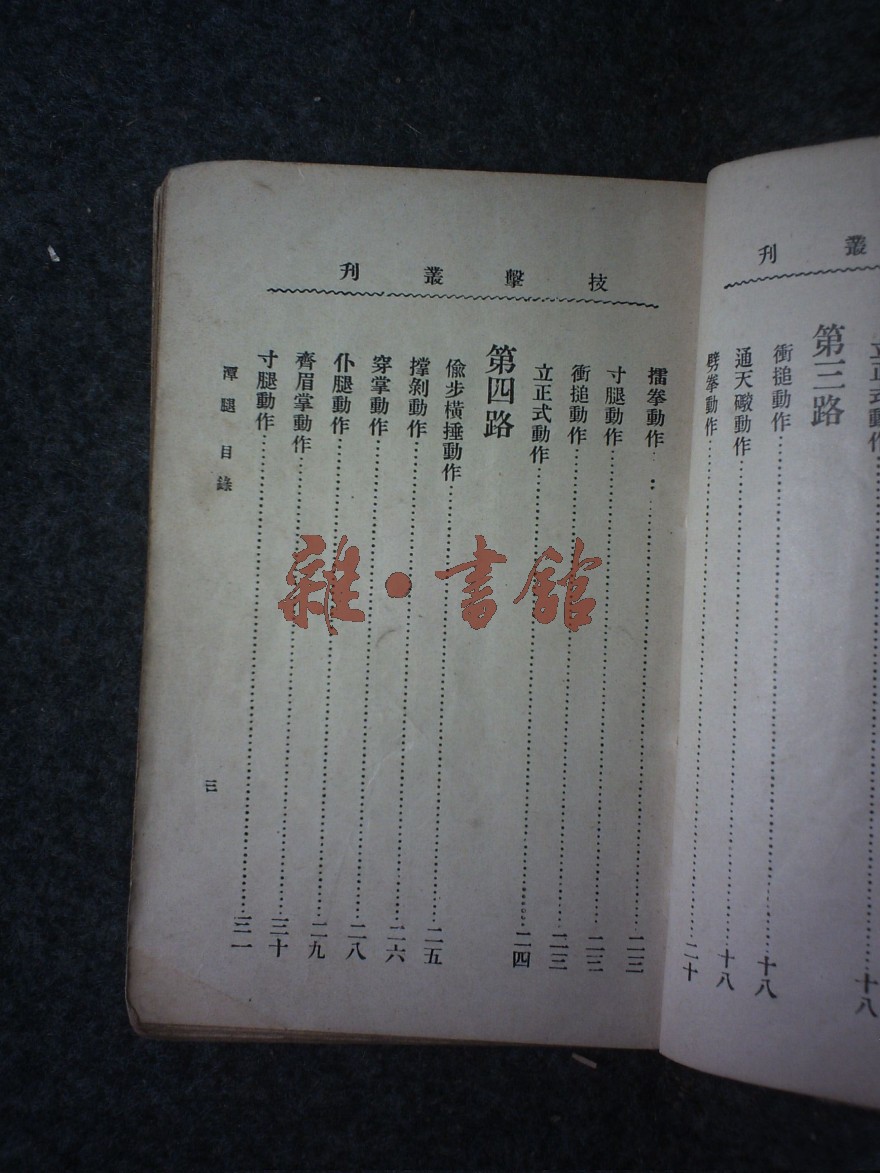 叢刊
立正式動作……十八
第三路
衝搥動作……十八
通天礮動作……十八
劈拳動作……二十
技擊叢刊
擂拳動作……二三
寸腿動作……二三
衝搥動作……二三
立正式動作……二四
第四路
偸步橫捶動作……二五
撑剝動作……二六
穿掌動作……二八
仆腿動作……二九
齊眉掌動作……三十
寸腿動作……三一
潭腿目錄
三
雜·書館